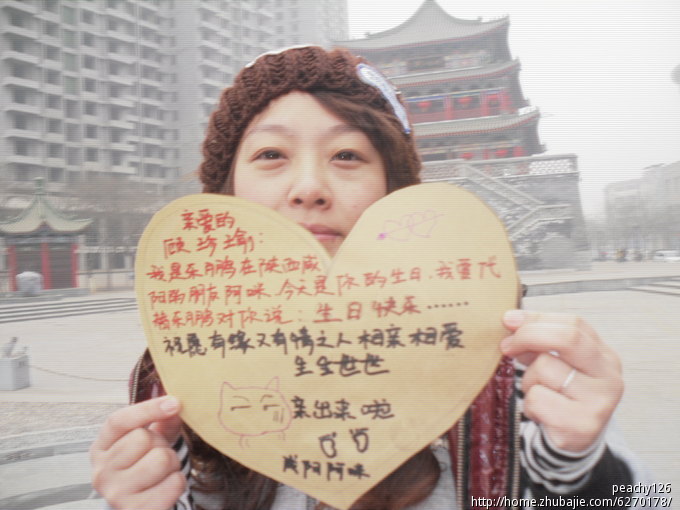 亲爱的
顾珍瑜:
我是东鹏在陕西咸
阳的朋友阿咪.今天是你的生日.我要代
替东鹏对你说:生日快乐……
祝愿有缘又有情之人相亲相爱
生生世世
亲出来啦
咸阳阿咪
peachy126
http://home.zhubajie.com/6270178/